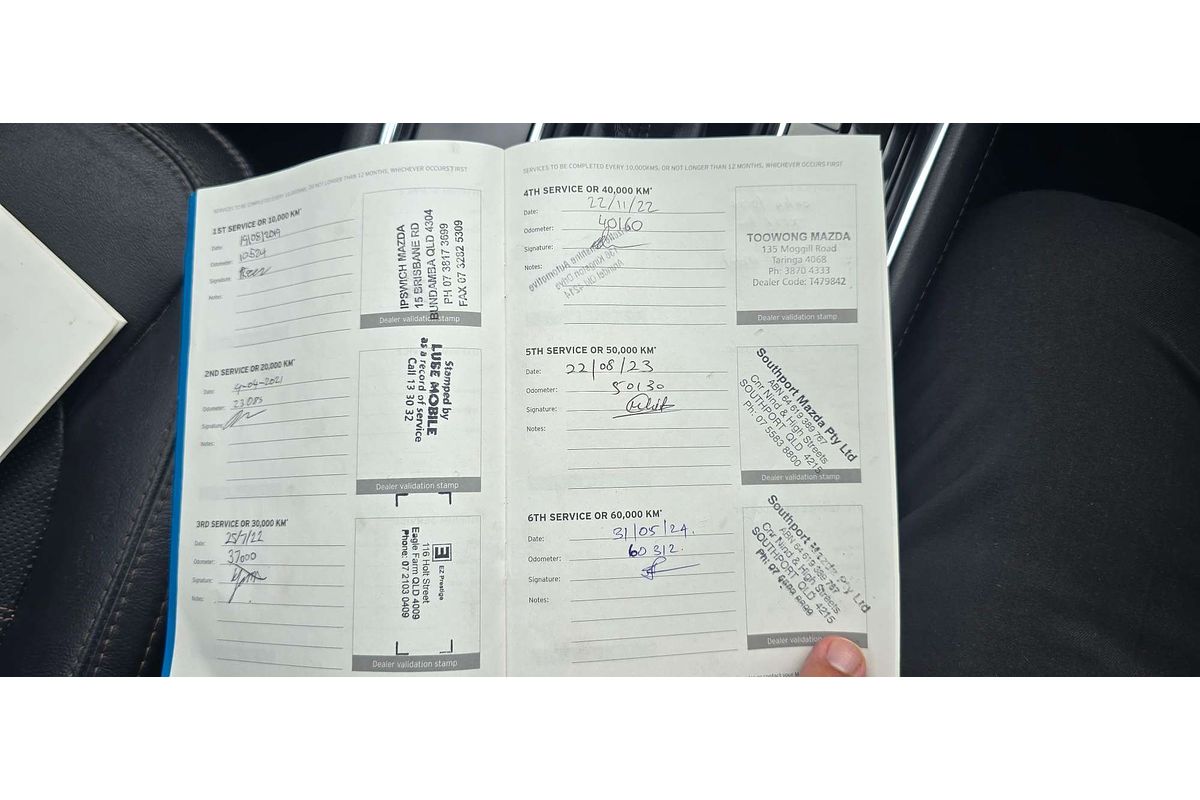 SERVICES TO BE COMPLETED EVERY 10,000KMS, OR NOT LONGER THAN 12 MONTHS, WHICHEVER OCCURS FIRST
1ST SERVICE OR 10,000 KM*
Date: 19/08/2019
Odometer: 10524
Signature:
Notes:
IPSWICH MAZDA
15 BRISBANE RD
BUNDAMBA QLD 4304
PH 07 3817 3699
FAX 07 3282 5309
Dealer validation stamp
2ND SERVICE OR 20,000 KM*
Date: 9-04-2021
Odometer: 23085
Signature:
Notes:
Stamped by
LUBE MOBILE
as a record of service
Call 13 30 32
Dealer validation stamp
3RD SERVICE OR 30,000 KM*
Date: 25/7/22
Odometer: 37000
Signature:
Notes:
E EZ Prestige
116 Holt Street
Eagle Farm QLD 4009
Phone: 07 2103 0409
Dealer validation stamp
SERVICES TO BE COMPLETED EVERY 10,000KMS, OR NOT LONGER THAN 12 MONTHS, WHICHEVER OCCURS FIRST
4TH SERVICE OR 40,000 KM*
Date: 22/11/22
Odometer: 40160
Signature:
Notes:
Automotive
TOOWONG MAZDA
135 Moggill Road
Taringa 4068
Ph: 3870 4333
Dealer Code: T479842
Dealer validation stamp
5TH SERVICE OR 50,000 KM*
Date: 22/08/23
Odometer: 50130
Signature:
Notes:
Southport Mazda Pty Ltd
ABN 64 619 389 767
Cnr Nind & High Streets
SOUTHPORT QLD 4215
Ph: 07 5583 8800
Dealer validation stamp
6TH SERVICE OR 60,000 KM*
Date: 31/05/24.
Odometer: 60312.
Signature:
Notes:
Southport Mazda Pty Ltd
ABN 64 619 389 767
Cnr Nind & High Streets
SOUTHPORT QLD 4215
Ph: 07
Dealer validation